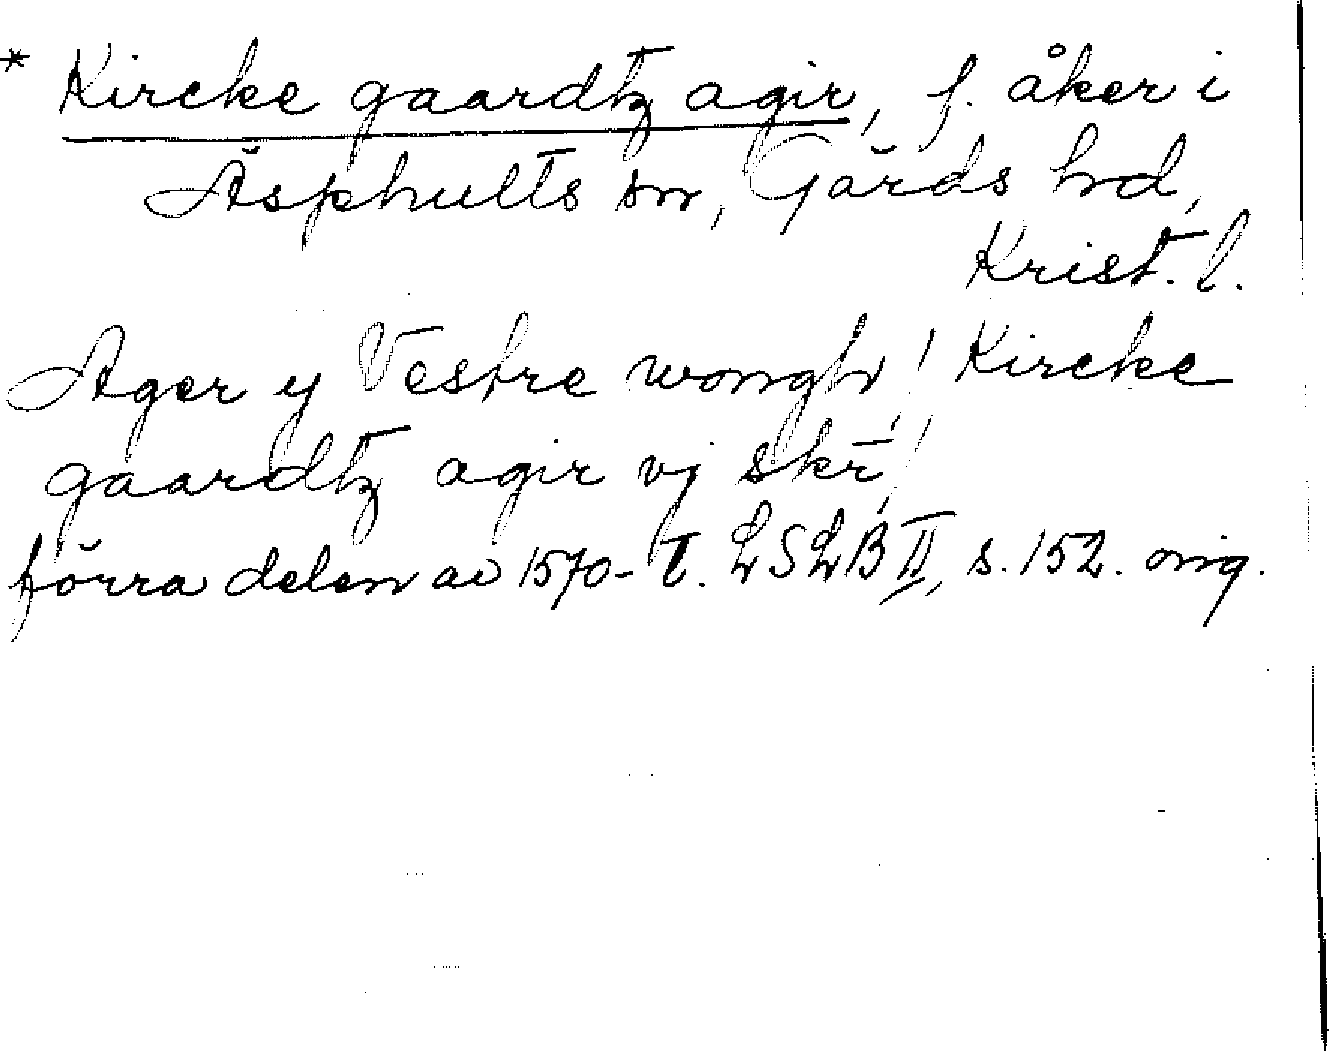 * Kircke gaardtz agir, f. åker i
Äsphults sn, Gärds hd,
Krist. l.
Ager y Vestre wongh / Kircke
gaardtz agir vj skr̄ /
förra delen av 1570-t. LSLB II, s. 152. orig.